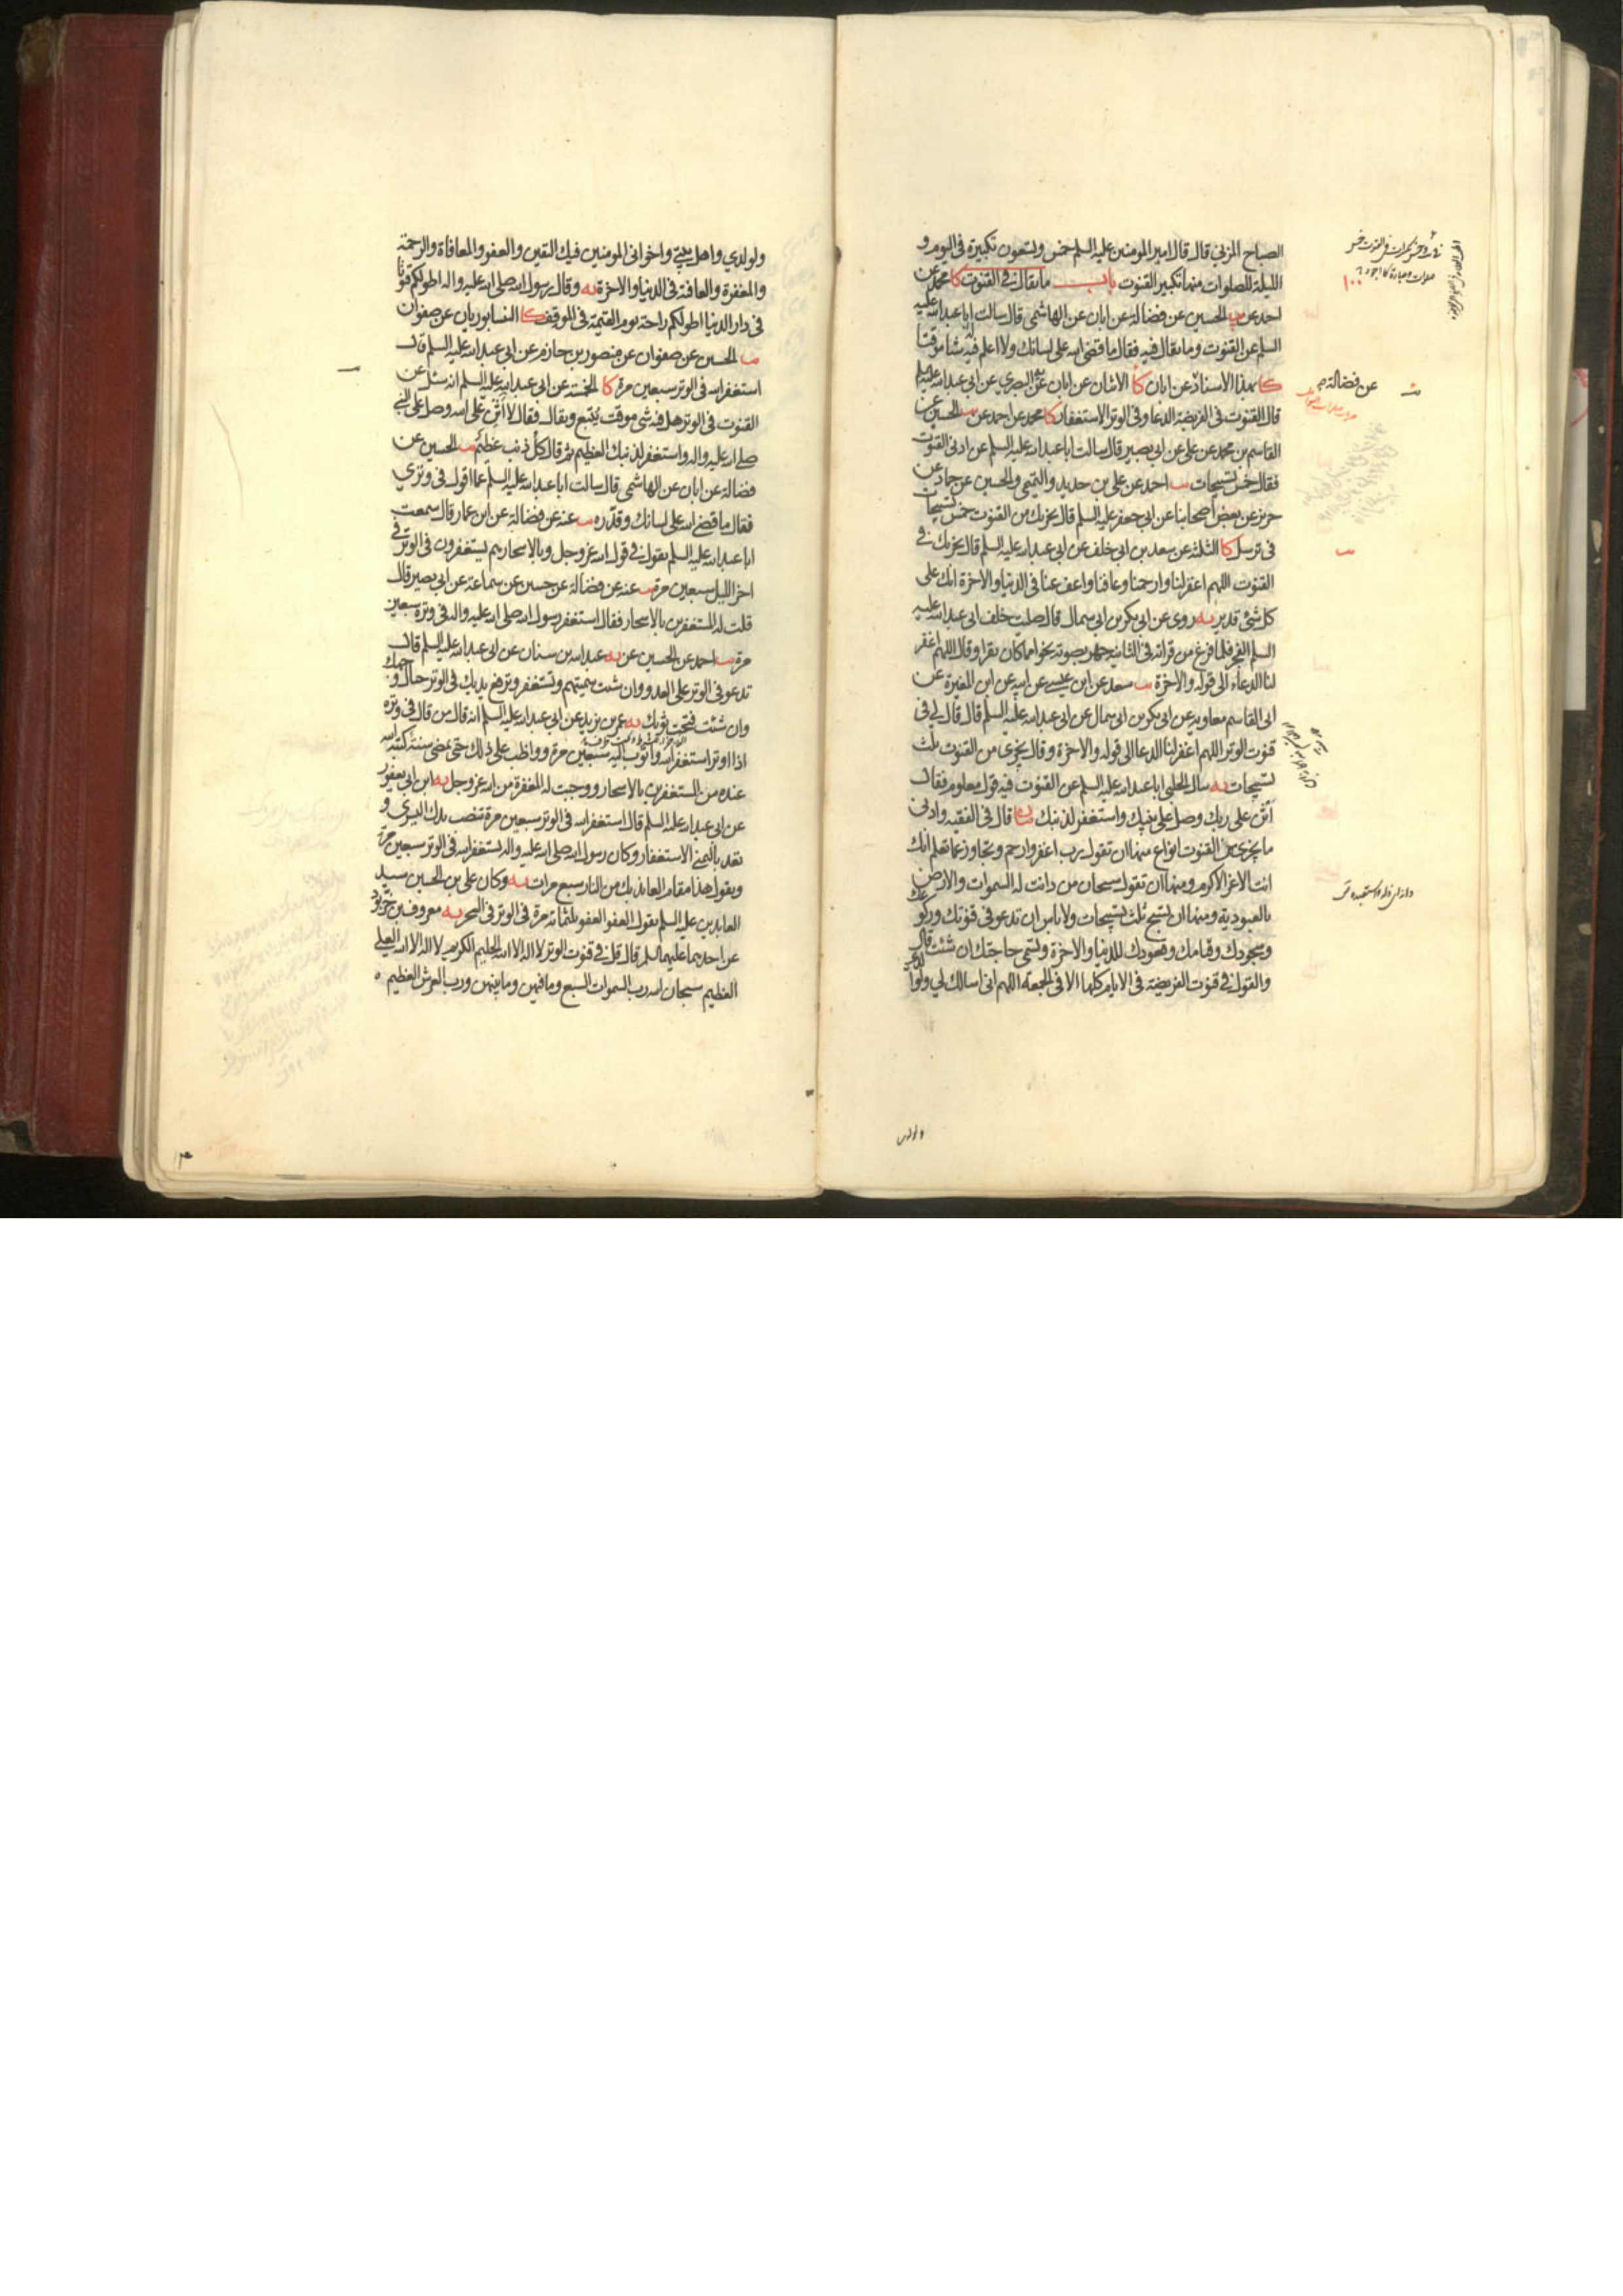 الصباح المزني قال قال امير المومنين عليه السلم خمس وتسعون تكبيرة في اليوم و
الليلة للصلوات منها تكبير القنوت باب ما يقال في القنوت كا محمد عن
احمد عن يب الحسين عن فضالة عن ابان عن الهاشمي قال سالت ابا عبد الله عليه
السلم عن القنوت وما يقال فيه فقال ما قضى الله على لسانك ولا اعلم فيه شيئا موقتا
كا بهذا الاسناد عن ابان كا الاثنان عن ابان عن البصري عن ابي عبد الله عليه السلم
قال القنوت في الفريضة الدعا وفي الوتر الاستغفار كا محمد عن احمد عن يب الحسين عن
القاسم بن محمد عن علي عن ابي بصير قال سالت ابا عبد الله عليه السلم عن ادنى القنوت
فقال خمس تسبيحات يب احمد عن علي بن حديد والتميمي والحسين عن حماد عن
حريز عن بعض اصحابنا عن ابي جعفر عليه السلم قال يجزيك من القنوت خمس تسبيحات
في ترسل كا الثلثة عن سعد بن ابي خلف عن ابي عبد الله عليه السلم قال يجزيك في
القنوت اللهم اغفر لنا وارحمنا وعافنا واعف عنا في الدنيا والاخرة انك على
كل شئ قدير يه روى عن ابي بكر بن ابي سمال قال صليت خلف ابي عبد الله عليه
السلم الفجر فلما فرغ من قرائته في الثانية جهر بصوته نحوا مما كان يقرا وقال اللهم اغفر
لنا الدعاء الى قوله والاخرة يب سعد عن ابن عيسى عن ابيه عن ابن المغيرة عن
ابي القاسم معاوية عن ابي بكر بن ابي سمال عن ابي عبد الله عليه السلم قال قال لي في
قنوت الوتر اللهم اغفر لنا الدعا الى قوله والاخرة وقال يجزي من القنوت ثلث
تسبيحات يه سال الحلبي ابا عبد الله عليه السلم عن القنوت فيه قول معلوم فقال
اثن على ربك وصل على نبيك واستغفر لذنبك قال في الفقيه وادنى
ما يجزي من القنوت انواع منها ان تقول رب اغفر وارحم وتجاوز عما تعلم انك
انت الاعز الاكرم ومنها ان تقول سبحان من دانت له السموات والارض
بالعبودية ومنها ان تسبح ثلث تسبيحات ولا باس ان تدعو في قنوتك وركوعك
وسجودك وقيامك وقعودك للدنيا والاخرة وتسمي حاجتك ان شئت قال
والقول في قنوت الفريضة في الايام كلها الا في الجمعة اللهم اني اسالك لي ولوالدي
عن فضالة
ولولدي واهل بيتي واخواني المومنين فيك اليقين والعفو والمعافاة والرحمة
والمغفرة والعافية في الدنيا والاخرة يه وقال رسول الله صلى الله عليه واله اطولكم قنوتا
في دار الدنيا اطولكم راحة يوم القيمة في الموقف كا النيسابوريان عن صفوان
يب الحسين عن صفوان عن منصور بن حازم عن ابي عبد الله عليه السلم قال
استغفر الله في الوتر سبعين مرة كا الخمسة عن ابي عبد الله عليه السلم انه سئل عن
القنوت في الوتر هل فيه شئ موقت يتبع ويقال فقال لا اثن على الله وصل على النبي
صلى الله عليه واله واستغفر لذنبك العظيم ثم قال كل ذنب عظيم يب الحسين عن
فضالة عن ابان عن الهاشمي قال سالت ابا عبد الله عليه السلم عما اقول في وتري
فقال ما قضى الله على لسانك وقدره يب عنه عن فضالة عن ابن عمار قال سمعت
ابا عبد الله عليه السلم يقول في قول الله عز وجل وبالاسحار هم يستغفرون في الوتر في
اخر الليل سبعين مرة يب عنه عن فضالة عن حسين عن سماعة عن ابي بصير قال
قلت له المستغفرين بالاسحار فقال استغفر رسول الله صلى الله عليه واله في وتره سبعين
مرة يب احمد عن الحسين عن يه عبد الله بن سنان عن ابي عبد الله عليه السلم قال
تدعو في الوتر على العدو وان شئت سميتهم وتستغفر وترفع يديك في الوتر حيال وجهك
وان شئت فتحت ثوبك يه عمر بن يزيد عن ابي عبد الله عليه السلم انه قال من قال في وتره
اذا اوتر استغفر الله واتوب اليه سبعين مرة وواظب على ذلك حتى يمضي سنة كتبه الله
عنده من المستغفرين بالاسحار ووجبت له المغفرة من الله عز وجل يه ابن ابي يعفور
عن ابي عبد الله عليه السلم قال استغفر الله في الوتر سبعين مرة تنصب يدك اليسرى و
تعد باليمنى الاستغفار وكان رسول الله صلى الله عليه واله يستغفر الله في الوتر سبعين مرة
ويقول هذا مقام العائذ بك من النار سبع مرات يه وكان علي بن الحسين سيد
العابدين عليه السلم يقول العفو العفو ثلثمائة مرة في الوتر في السحر يه معروف بن خربوذ
عن احدهما عليهما السلم قال قل في قنوت الوتر لا اله الا الله الحليم الكريم لا اله الا الله العلي
العظيم سبحان الله رب السموات السبع وما فيهن وما بينهن ورب العرش العظيم